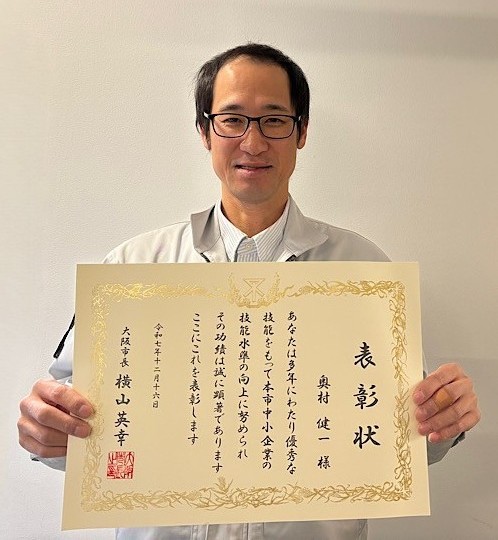 表彰状
奥村健一様
あなたは多年にわたり優秀な
技能をもって本市中小企業の
技能水準の向上に努められ
その功績は誠に顕著であります
ここにこれを表彰します
令和七年十二月十六日
大阪市長 横山英幸